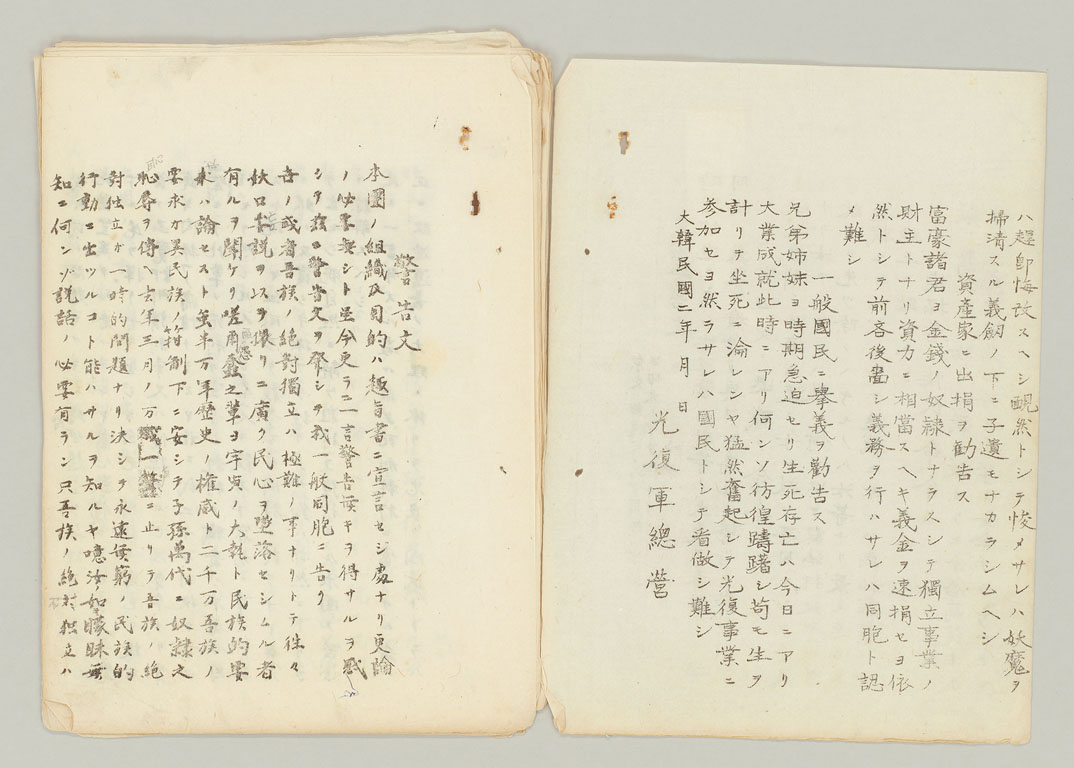 ハ趕即悔改スヘシ靦然トシテ悛メサレハ妖魔ヲ
掃清スル義劒ノ下ニ孑遺モナカラシムヘシ
資產家ニ出捐ヲ勸告ス
富豪諸君ヨ金錢ノ奴隷トナラスシテ獨立事業ノ
財主トナリ資力ニ相當スヘキ義金ヲ速捐セヨ依
然トシテ前吝後嗇シ義務ヲ行ハサレハ同胞ト認
メ難シ
一般國民ニ擧義ヲ勸告ス
兄弟姉妹ヨ時期急迫セリ生死存亡ハ今日ニアリ
大業成就此時ニアリ何ンソ彷徨躊躇シ苟モ生ヲ
計リテ坐死ニ淪レンヤ猛然奮起シテ光復事業ニ
參加セヨ然ラサレハ國民トシテ看做シ難シ
大韓民國二年 月 日
光復軍總營
警告文
本團ノ組織及目的ハ趣旨書ニ宣言セシ處ナリ更論
ノ必要無シト虽今更ラニ一言警告無キヲ得サルヲ感
シテ茲ニ警告文ヲ發シテ我一般同胞ニ告ク
吉ノ或者吾族ノ絶對獨立ハ極難ノ事ナリトテ徃々
妖口辜説ヲ以テ猥リニ廣ク民心ヲ墜落セシムル者
有ルヲ聞ケリ嗟爾蠢之輩ヨ宇宙ノ大乾ト民族的要
求ハ論セスト虽半万年歷史ノ權威ト二千万吾族ノ
要求カ異民族ノ箝制下ニ安シテ子孫萬代ニ奴隷之
恥辱ヲ傳ヘ去年三月ノ万 一聲ニ止リテ吾族ノ絶
對独立カ一時的問題ナリ決シテ永遠無窮ノ民族的
行動ニ出ツルコト能ハサルヲ知ルヤ噫汝如朦昧無
知ニ何ンゾ説話ノ必要有ラン只吾族ノ絶対独立ハ